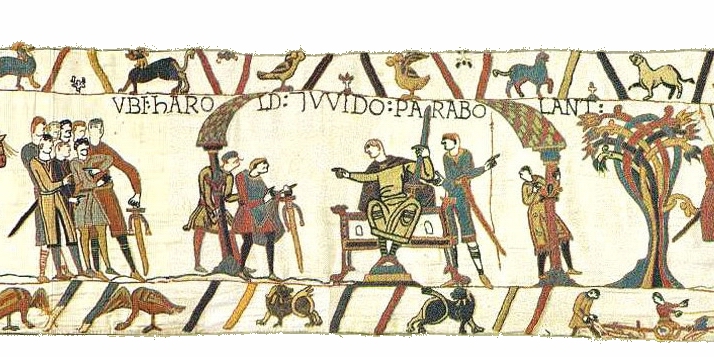 VBI: hARO LD: ⁊VVIDO: PARABO LANT: